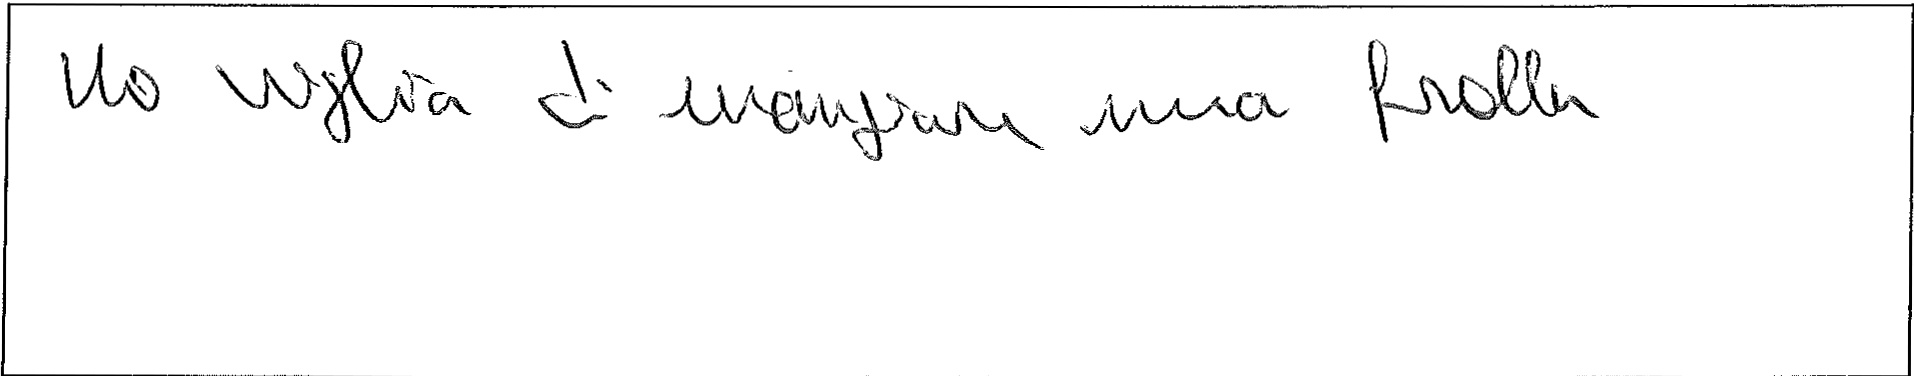 Ho voglia di mangiare una frolla